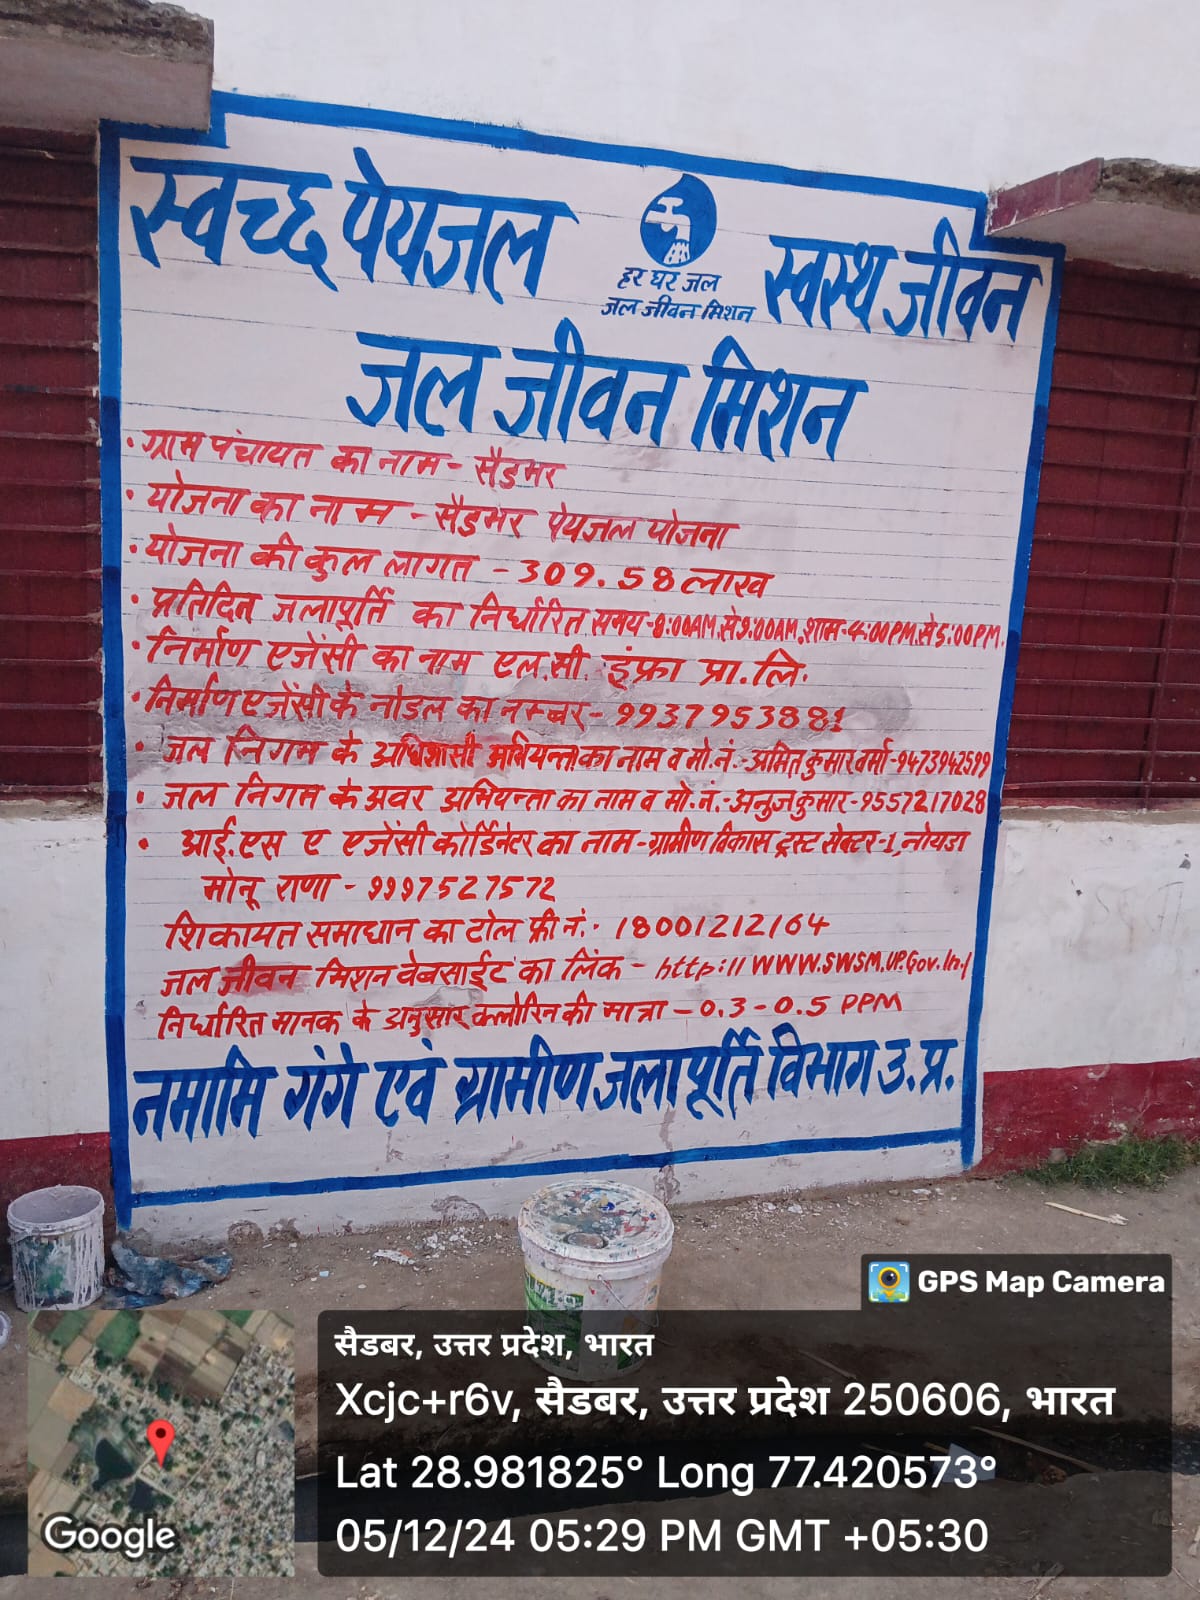 स्वच्छ पेयजल
हर घर जल
जल जीवन मिशन
स्वस्थ जीवन
जल जीवन मिशन
• ग्राम पंचायत का नाम - सैडभर
• योजना का नाम - सैडभर पेयजल योजना
• योजना की कुल लागत - 309.58 लाख
• प्रतिदिन जलापूर्ति का निर्धारित समय-8:00AM.से9:00AM,शाम-4:00PM.से5:00PM.
• निर्माण एजेंसी का नाम एल.सी. इंफ्रा प्रा.लि.
• निर्माण एजेंसी के नोडल का नम्बर- 9937953881
• जल निगम के अधिशासी अभियन्ता का नाम व मो.नं.-अमित कुमार वर्मा-9473942599
• जल निगम के अवर अभियन्ता का नाम व मो.नं.-अनुज कुमार-9557217028
• आई.एस ए एजेंसी कोर्डिनेटर का नाम-ग्रामीण विकास ट्रस्ट सेक्टर-1,नोयडा
मोनू राणा - 9997527572
शिकायत समाधान का टोल फ्री नं.- 18001212164
जल जीवन मिशन वेबसाईट का लिंक - http:// WWW.SWSM.UP.Gov.In./
निर्धारित मानक के अनुसार क्लोरिन की मात्रा - 0.3-0.5 PPM
नमामि गंगे एवं ग्रामीण जलापूर्ति विभाग उ.प्र.
GPS Map Camera
सैडबर, उत्तर प्रदेश, भारत
Xcjc+r6v, सैडबर, उत्तर प्रदेश 250606, भारत
Lat 28.981825° Long 77.420573°
05/12/24 05:29 PM GMT +05:30
Google